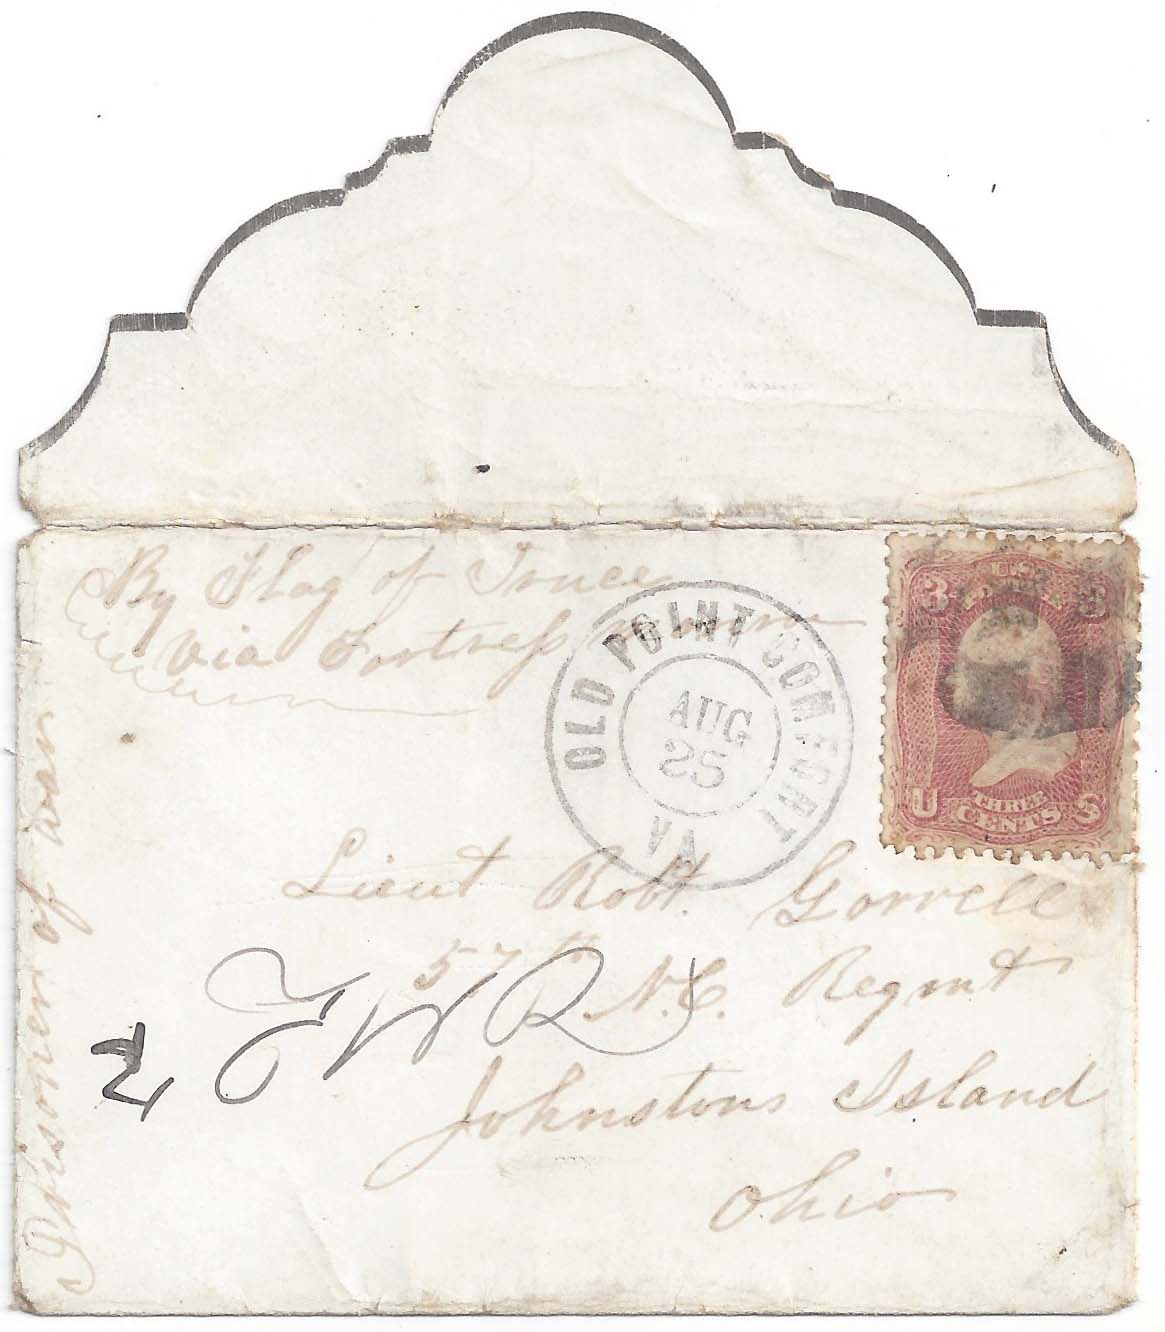 By Flag of Truce
via Fortress Monroe
OLD POINT COMFORT
AUG
25
VA
3 3
U THREE S
CENTS
Lieut Robt. Gorrell
57th N.C. Regmt
Johnstons Island
Ohio
Prisoner of war